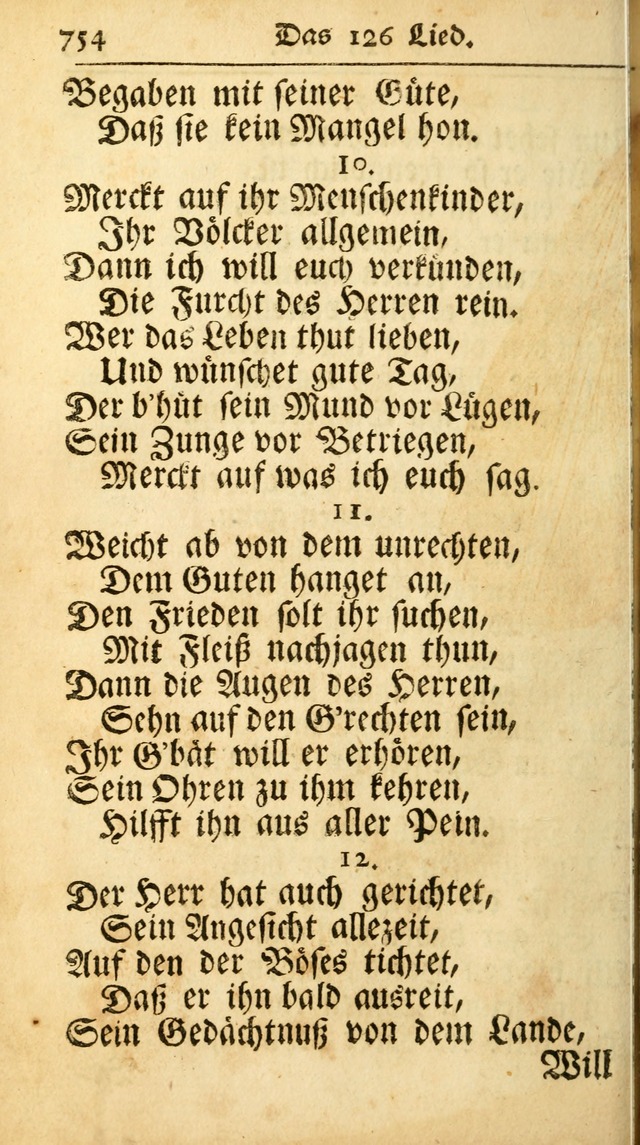 754 Das 126 Lied.
Begaben mit seiner Güte,
Daß sie kein Mangel hon.
10.
Merckt auf ihr Menschenkinder,
Ihr Völcker allgemein,
Dann ich will euch verkünden,
Die Furcht des Herren rein.
Wer das Leben thut lieben,
Und wünschet gute Tag,
Der b'hüt sein Mund vor Lügen,
Sein Zunge vor Betriegen,
Merckt auf was ich euch sag.
11.
Weicht ab von dem unrechten,
Dem Guten hanget an,
Den Frieden solt ihr suchen,
Mit Fleiß nachjagen thun,
Dann die Augen des Herren,
Sehn auf den G'rechten sein,
Ihr G'bät will er erhören,
Sein Ohren zu ihm kehren,
Hilfft ihn aus aller Pein.
12.
Der Herr hat auch gerichtet,
Sein Angesicht allezeit,
Auf den der Böses tichtet,
Daß er ihn bald ausreit,
Sein Gedächtnuß von dem Lande,
Will